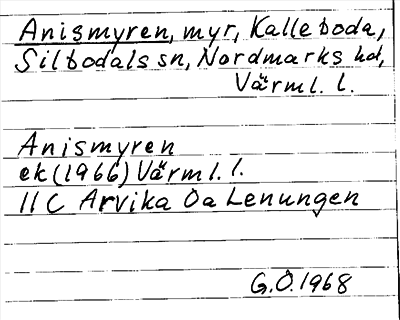 Anismyren, myr, Kalleboda,
Silbodals sn, Nordmarks hd,
Värml. l.
Anismyren
ek (1966) Värml. l.
11 C Arvika 0a Lenungen
G.Ö. 1968